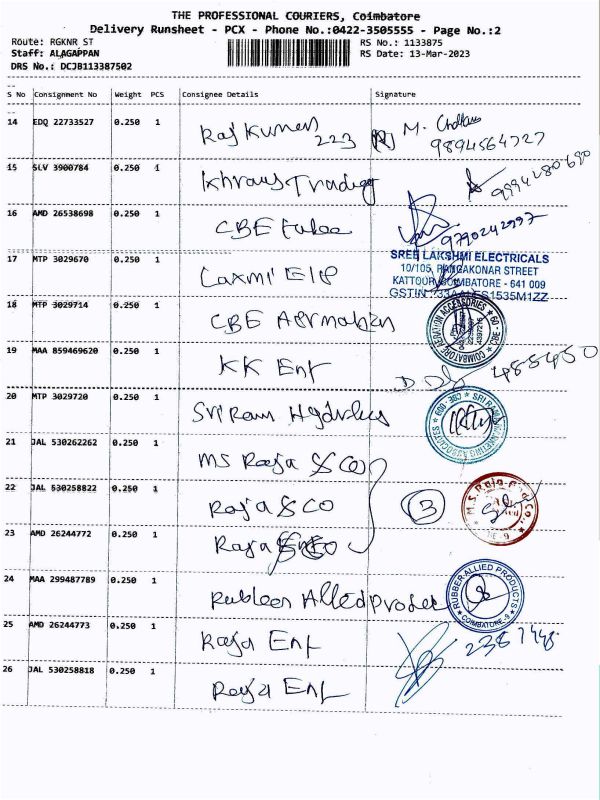 THE PROFESSIONAL COURIERS, Coimbatore
Delivery Runsheet - PCX - Phone No.:0422-3505555 - Page No.:2
Route: RGKNR ST RS No.: 1133875
Staff: ALAGAPPAN RS Date: 13-Mar-2023
DRS No.: DCJB113387502
S No Consignment No Weight PCS Consignee Details Signature
14 EDQ 22733527 0.250 1 Raj Kumar 223 M.
9894564727
15 SLV 3900784 0.250 1 Khraus Trading 9994280690
16 AMD 26538698 0.250 1 CBE 9790242997
17 MTP 3029670 0.250 1 Laxmi Ele
SREE LAKSHMI ELECTRICALS
10/105, RANGAKONAR STREET
KATTOOR, COIMBATORE - 641 009
GSTIN : 1535M1ZZ
18 MTP 3029714 0.250 1 CBE COIMBATORE AERATION ACCESSORIES * CBE - 09
19 MAA 859469620 0.250 1 KK Ent 485450
20 MTP 3029720 0.250 1 Sri Ram Hydralics
21 JAL 530262262 0.250 1 MS Raja & Co
22 JAL 530258822 0.250 1 Raja & CO 3 M.S. Raja And Co.,
23 AMD 26244772 0.250 1 Raja
24 MAA 299487789 0.250 1 Rubber Allied Product RUBBER-ALLIED PRODUCTS COIMBATORE-9
25 AMD 26244773 0.250 1 Raja Ent
26 JAL 530258818 0.250 1 Raja Ent